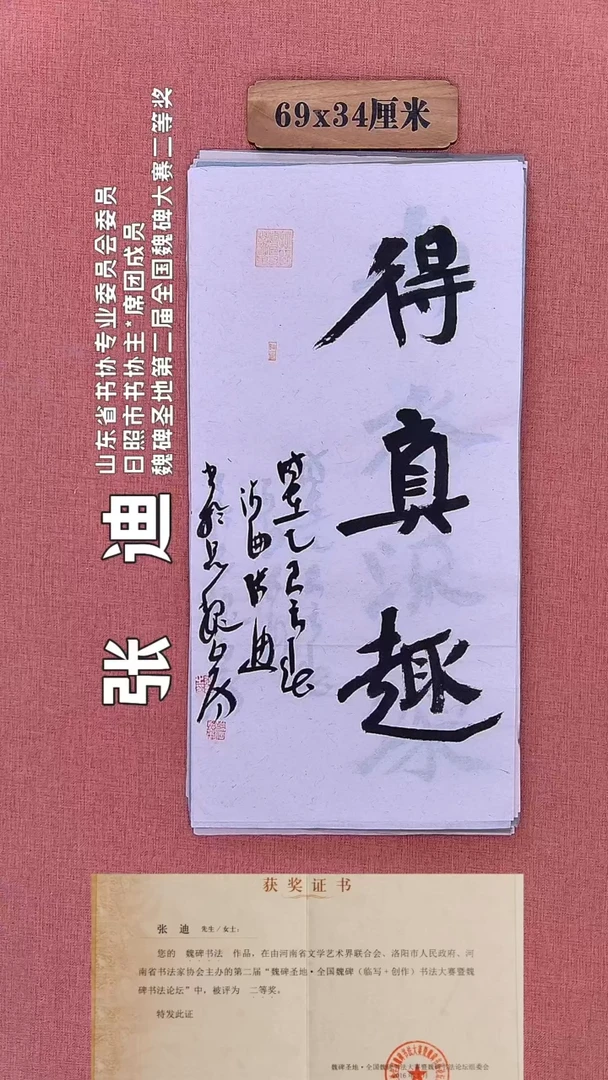 69x34厘米
山东省书协专业委员会委员
日照市书协主*席团成员
魏碑圣地第二届全国魏碑大赛二等奖
张迪
得真趣
时在乙巳
海曲张迪
获奖证书
张 迪 先生/女士：
您的 魏碑书法 作品，在由河南省文学艺术界联合会、洛阳市人民政府、河
南省书法家协会主办的第二届“魏碑圣地·全国魏碑（临写+创作）书法大赛暨魏
碑书法论坛”中，被评为 二等奖。
特发此证
魏碑圣地·全国魏碑书法大赛暨魏碑书法论坛组委会